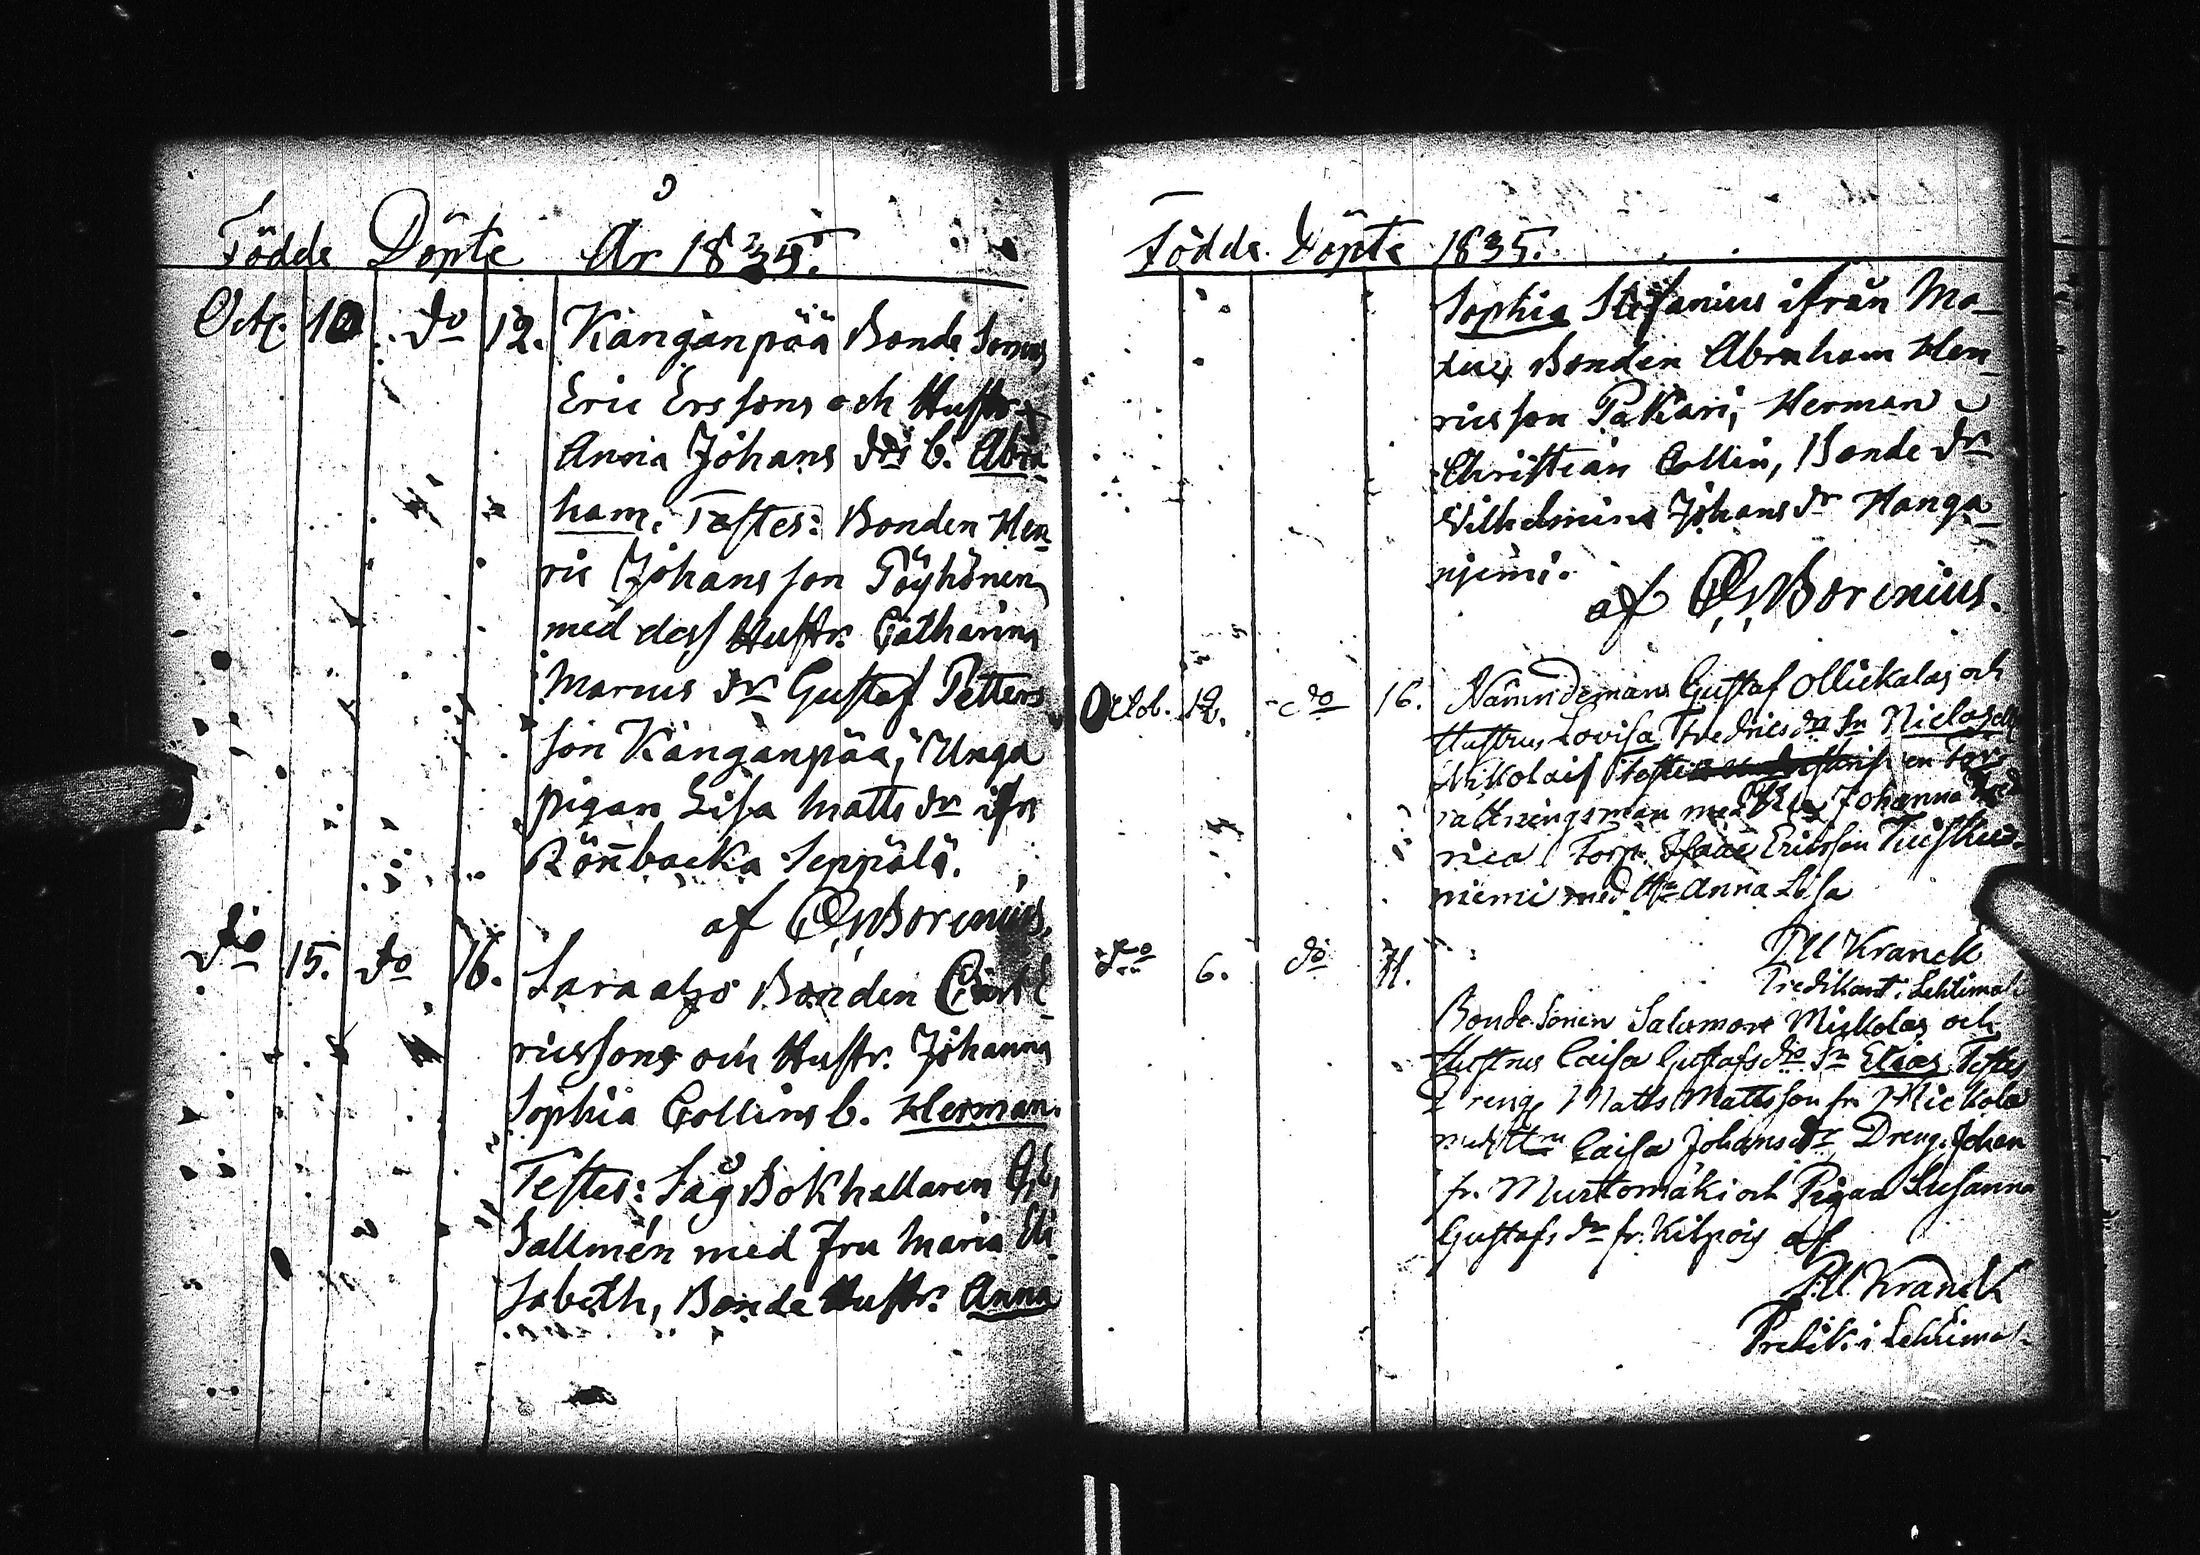 Födde Döpte År 1835.
Oct. 10 do 12. Kanganpää Bonde Sonens
Eric Ers sons och Hustr.
Anna Johans dr b. Abra
ham. Testes: Bonden Hen
ric Johans son Töyhönen
med dess Hustr. Catharina
Marcus dr Gustaf Petters
son Kanganpää, Unga
pigan Lisa Matts dr ifrn
Rönbacka Seppälä.
af Borenius.
do 15. do 16. Saraaho Bonden
ricssons och Hustr. Johanna
Sophia Collins b. Herman.
Testes: Såg Bokhållaren
Sallmén med Fru Maria Eli
sabeth, Bonde Hustr. Anna
Födde Döpte 1835.
Sophia Stefanius ifrån Ma
Bonden Abraham Hen
ricsson Pakari, Herman
Christian Collin, Bonde dr
Vilhelmina Johans dr Hanga
niemi.
af Borenius.
Octob. 12. do 16. Nämndemans Gustaf Ollickalas och
Hustrus Lovisa Fredrics dr Sn Niclas
Nikolai Testes en För
rättningsman med Johanna Fred
rica Torp. Isaac Ericsson
niemi med Hu Anna Lisa
Kranck
Predikant i Lehtimäk
do 6. do 11.
Bonde Sonen Salomon Mickolas och
Hustrus Caisa Gustafs do Sn Elias Testes
Dreng Matts Mattsson fr. Mickola
med Hu Caisa Johans dr, Dreng. Johan
fr. Murtomäki och Pigan Susanna
Gustafs dr fr. Kilpois af
Kranck
Predik. i Lehtimäk